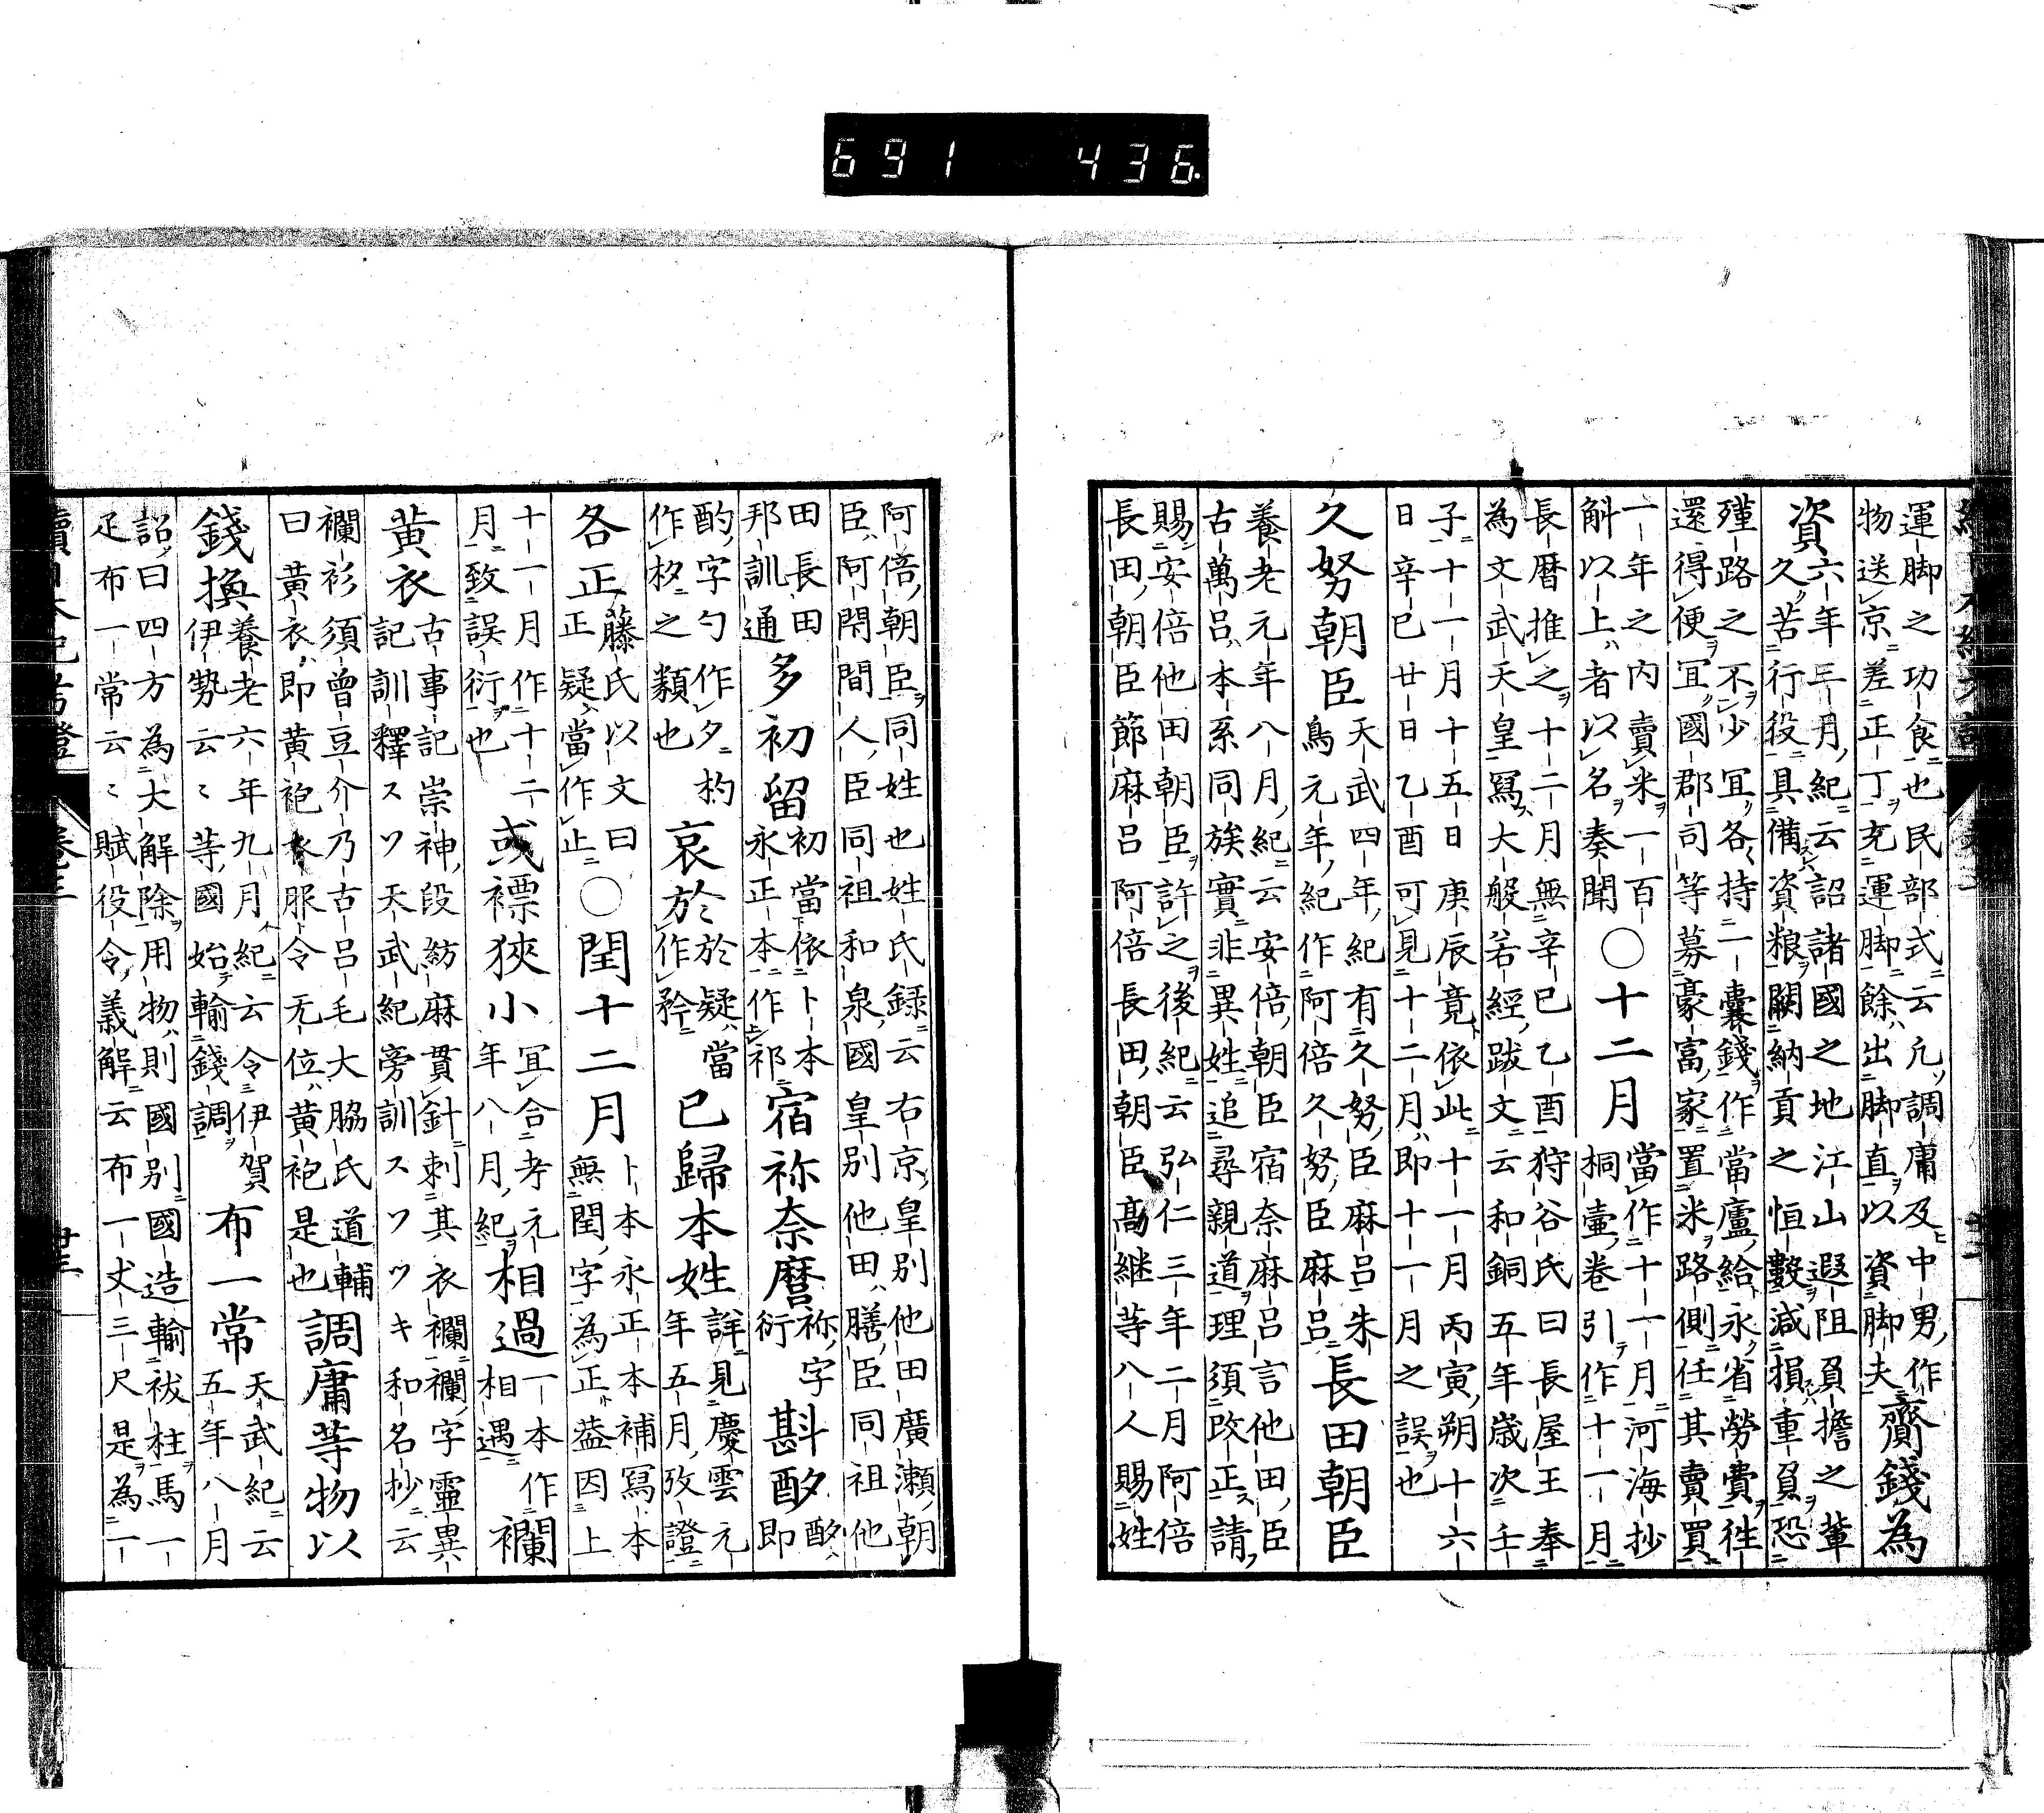 691 436
運脚之功食也民部式云凡調庸及中男作
物送京差正丁充運脚餘出脚直以資脚夫
齎錢為
資
六年三月紀云詔諸國之地江山遐阻負擔之輩
久苦行役具備資粮闕納貢之恒數減損重負恐
殣路之不少冝各持一囊錢作當盧給永省勞費徃
還得便冝國郡司等募豪富家置米路側任其賣買
一年之内賣米一百
斛以上者以名奏聞
○十二月
當作十一月河海抄
桐壷卷引作十一月
長暦推之十二月無辛巳乙酉狩谷氏曰長屋王奉
為文武天皇寫大般若經跋文云和銅五年歳次壬
子十一月十五日庚辰竟依此十一月丙寅朔十六
日辛巳廿日乙酉可見十二月即十一月之誤也
久努朝臣
天武四年紀有久努臣麻呂朱
鳥元年紀作阿倍久努臣麻呂
長田朝臣
養老元年八月紀云安倍朝臣宿奈麻呂言他田臣
古萬呂本系同族實非異姓追尋親道理須改正請
賜安倍他田朝臣許之後紀云弘仁三年二月阿倍
長田朝臣節麻呂阿倍長田朝臣髙継等八人賜姓
阿倍朝臣同姓也姓氏録云右京皇别他田廣瀬朝
臣阿閇間人臣同祖和泉國皇别他田膳臣同祖他
田長田
邦訓通
多初留
初當依卜本
永正本作祁
宿祢奈麿
祢字
衍
斟酘
酘即
酌字勺作夕杓
作杦之類也
哀於
於疑當
作矜
已歸本姓
詳見慶雲元
年五月攷證
各正
藤氏以文曰
正疑當作止
○閏十二月
卜本永正本補寫本
無閏字為正葢因上
十一月作十二
月致誤衍也
或褾狹小
冝合考元
年八月紀
相過
一本作
相遇
襴
黄衣
古事記崇神段紡麻貫針刺其衣襴襴字靈異
記訓釋スソ天武紀旁訓スソツキ和名抄云
襴衫須曽豆介乃古呂毛大脇氏道輔
曰黄衣即黄袍衣服令无位黄袍是也
調庸等物以
錢換
養老六年九月紀云令伊賀
伊勢云〻等國始輸錢調
布一常
天武紀云
五年八月
詔曰四方為大解除用物則國别國造輸祓柱馬一
疋布一常云〻賦役令義解云布一丈三尺是為一